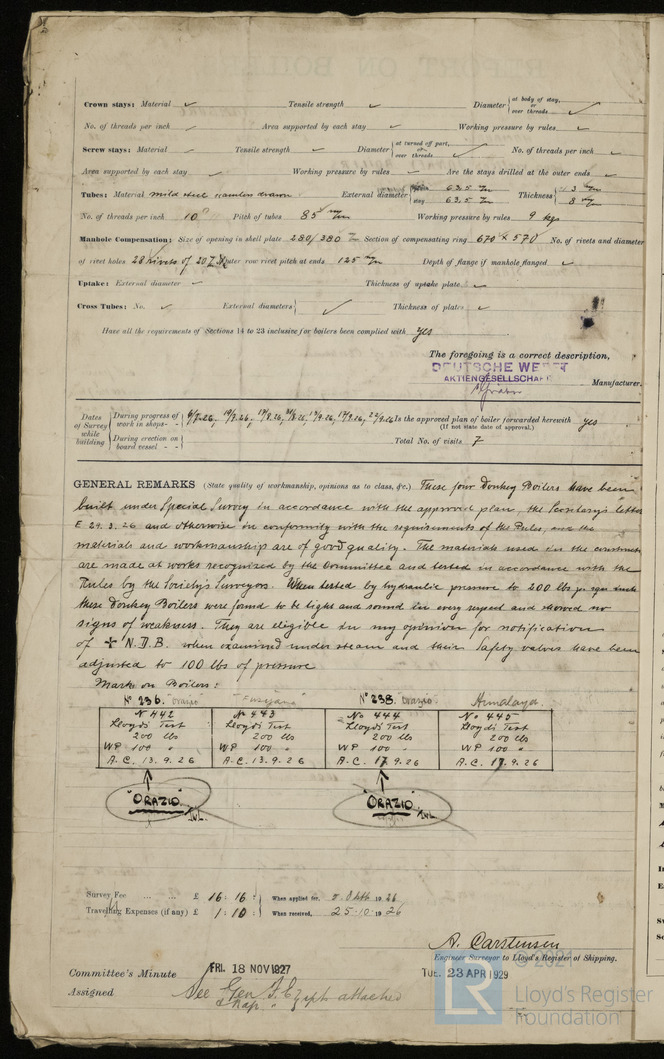 Crown stays: Material ✓ Tensile strength ✓ Diameter { at body of stay, or over threads ✓
No. of threads per inch ✓ Area supported by each stay ✓ Working pressure by rules ✓
Screw stays: Material ✓ Tensile strength ✓ Diameter { at turned off part, or over threads ✓ No. of threads per inch ✓
Area supported by each stay ✓ Working pressure by rules ✓ Are the stays drilled at the outer ends ✓
Tubes: Material mild steel seamless drawn External diameter { plain 63.5 m/m stay 63.5 m/m Thickness { 3 m/m 8 m/m
No. of threads per inch 10 Pitch of tubes 85 m/m Working pressure by rules 9 kgs
Manhole Compensation: Size of opening in shell plate 280/380 m/m Section of compensating ring 670 x 570 No. of rivets and diameter
of rivet holes 28 rivets of 20 Outer row rivet pitch at ends 125 m/m Depth of flange if manhole flanged ✓
Uptake: External diameter ✓ Thickness of uptake plate ✓
Cross Tubes: No. ✓ External diameters { ✓ Thickness of plates ✓
Have all the requirements of Sections 14 to 23 inclusive for boilers been complied with yes
The foregoing is a correct description,
DEUTSCHE WERFT
AKTIENGESELLSCHAFT
Manufacturer.
Dates of Survey while building { During progress of work in shops - - 22.9.26 Is the approved plan of boiler forwarded herewith yes
(If not state date of approval.)
During erection on board vessel - - Total No. of visits 7
GENERAL REMARKS (State quality of workmanship, opinions as to class, &c.) These four Donkey Boilers have been
built under Special Survey in accordance with the approved plan, the Secretary's letter
E 29.3.26 and otherwise in conformity with the requirements of the Rules, and the
materials and workmanship are of good quality. The materials used in the construct
are made at works recognized by the Committee and tested in accordance with the
Rules by the Society's Surveyors. When tested by hydraulic pressure to 200 lbs p. sqr inch
these Donkey Boilers were found to be tight and sound in every respect and showed no
signs of weakness. They are eligible in my opinion for notification
of ✠ N.D.B. when examined under steam and their Safety valves have been
adjusted to 100 lbs of pressure
Marks on Boilers:
No 236. Orazio "Fusijama" No 238. Orazio Himalaya.
No 442 No 443 No 444 No 445
Lloyds Test Lloyds Test Lloyds Test Lloyds Test
200 lbs 200 lbs 200 lbs 200 lbs
WP 100 " WP 100 " WP 100 " WP 100 "
A.C. 13.9.26 A.C. 13.9.26 A.C. 17.9.26 A.C. 17.9.26
"ORAZIO" "ORAZIO"
Survey Fee ... ... £ 16 : 16 : When applied for, 1926
Travelling Expenses (if any) £ 1 : 10 : When received, 25.10.1926
A. Carstensen
Engineer Surveyor to Lloyd's Register of Shipping.
© 2021
Committee's Minute FRI. 18 NOV 1927 TUE. 23 APR 1929
Assigned See Gen F.E. Rpt attached
LR Lloyd's Register
Foundation